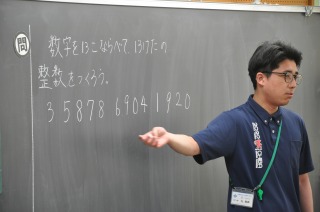 問
数字を13こならべて、13けたの
整数をつくろう。
3 5 8 7 8 6 9 0 4 1 9 2 0